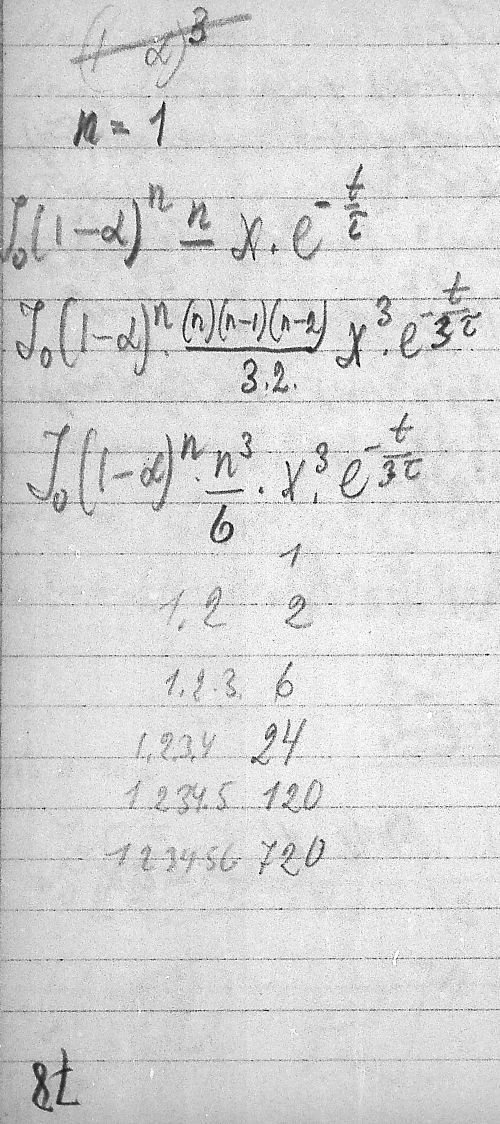 (1-α)³
n = 1
J₀(1-α)ⁿ n x · e^(-t/τ)
J₀(1-α)ⁿ · (n)(n-1)(n-2)/3.2. x³ · e^(-t/3τ)
J₀(1-α)ⁿ · n³/6 · x³ · e^(-t/3τ)
1
1.2 2
1.2.3. 6
1.2.3.4 24
1 2 3 4.5 120
1 2 3 4 5 6 720